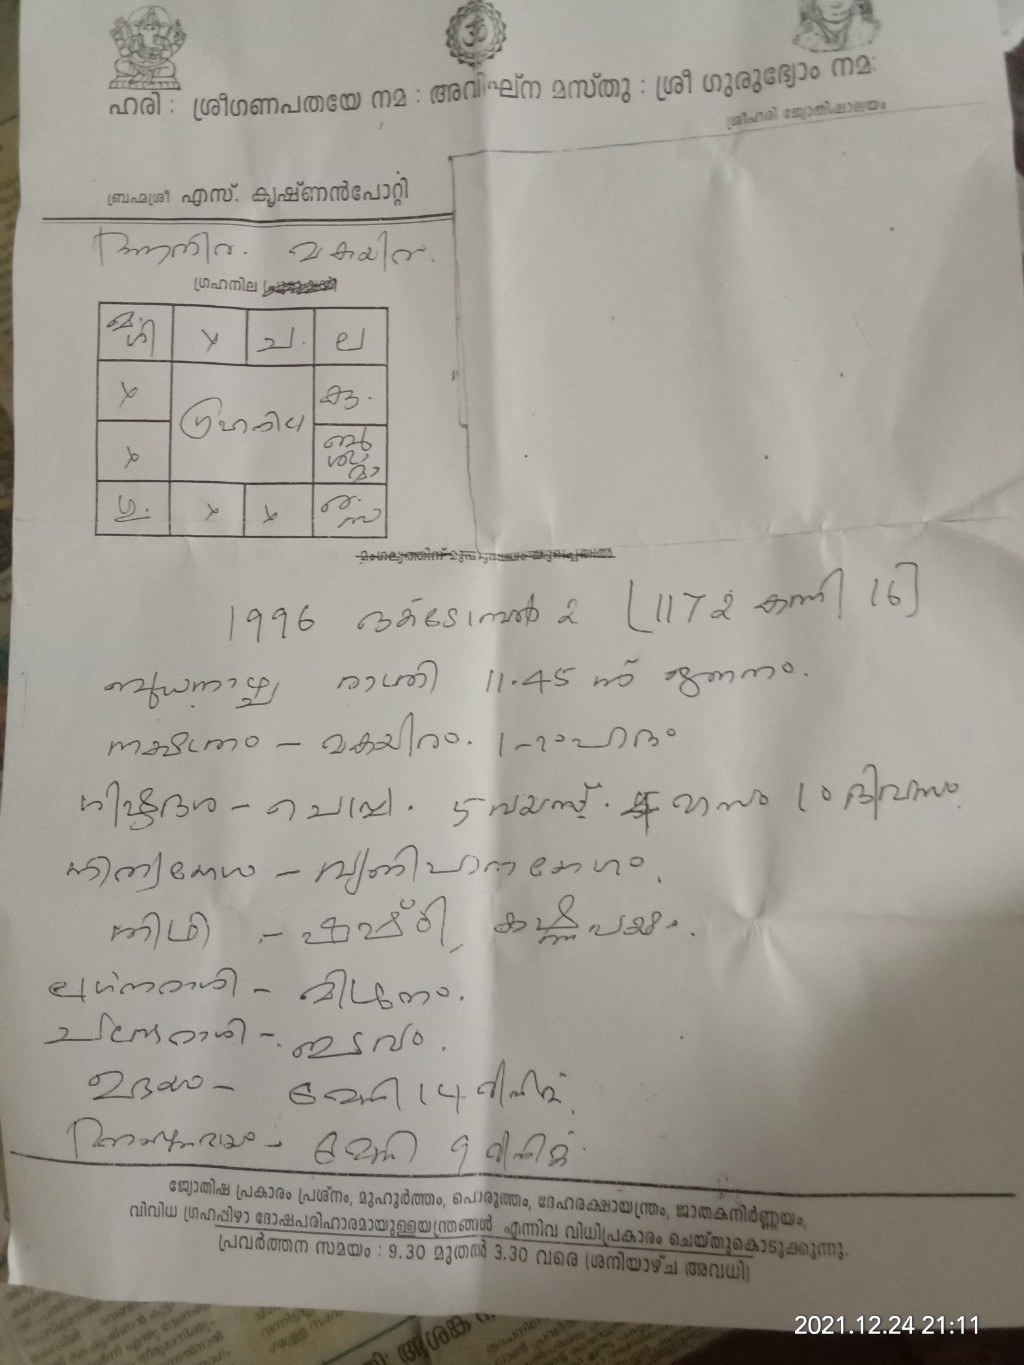 ഹരി : ശ്രീഗണപതയേ നമ : അവിഘ്ന മസ്തു : ശ്രീ ഗുരുഭ്യോം നമ:
ശ്രീഹരി ജ്യോതിഷാലയം
ബ്രഹ്മശ്രീ എസ്. കൃഷ്ണൻപോറ്റി
ഗ്രഹനില
മ ശി x ച. ല
x കു.
ഗ്രഹനില
x ബു ശു മാ
ഗു. x x ര. സ
1996 ഒക്ടോബർ 2 [1172 കന്നി 16]
ബുധനാഴ്ച രാത്രി 11.45 ന് ജനനം.
നക്ഷത്രം - മകയിരം. 1-ാം പാദം
ശിഷ്ടദശ - ചൊവ്വ. 5 വയസ്സ്. മാസം 10 ദിവസം
നിത്യയോഗം - വ്യതിപാത യോഗം.
തിഥി - ഷഷ്ഠി, കൃഷ്ണപക്ഷം.
ലഗ്നരാശി - മിഥുനം.
ചന്ദ്രരാശി - ഇടവം.
ഉദയം - 6 മണി 14 മിനിട്ട്.
അസ്തമയം - 6 മണി 9 മിനിട്ട്.
ജ്യോതിഷ പ്രകാരം പ്രശ്നം, മുഹൂർത്തം, പൊരുത്തം, ദേഹരക്ഷായന്ത്രം, ജാതകനിർണ്ണയം,
വിവിധ ഗ്രഹപ്പിഴാ ദോഷപരിഹാരമായുള്ളയന്ത്രങ്ങൾ എന്നിവ വിധിപ്രകാരം ചെയ്തുകൊടുക്കുന്നു.
പ്രവർത്തന സമയം : 9.30 മുതൽ 3.30 വരെ (ശനിയാഴ്ച അവധി)
2021.12.24 21:11